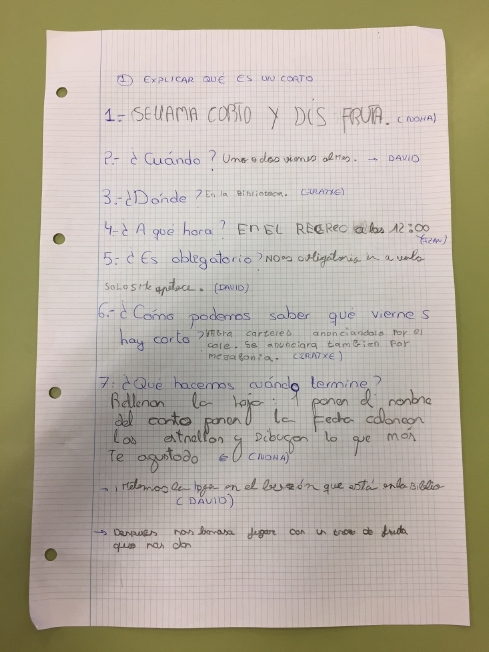 ① EXPLICAR QUÉ ES UN CORTO
1.- SE LLAMA CORTO Y DIS FRUTA. (NOHA)
2.- ¿Cuándo? Uno o dos viernes al mes. → DAVID
3.- ¿Dónde? En la Biblioteca. (IRATXE)
4.- ¿A qué hora? EN EL RECREO a las 12:00
(IZAN)
5.- ¿Es oblegatorio? No es obligatorio ir a verlo
solo si te apetece. (DAVID)
6.- ¿Cómo podemos saber qué viernes
hay corto? Habra carteles anunciandolo por el
cole. Se anunciara tambien por
megafonia. (IRATXE)
7.- ¿Qué hacemos cuándo termine?
Rellenan la hoja: ponen el nombre
del corto ponen la Fecha colorean
las estrellas y Dibujan lo que más
Te agustado (NOHA)
→ Metemos la hoja en el buzón que está en la Biblio
(DAVID)
→ Después nos vamos a jugar con un trozo de fruta
que nos dan